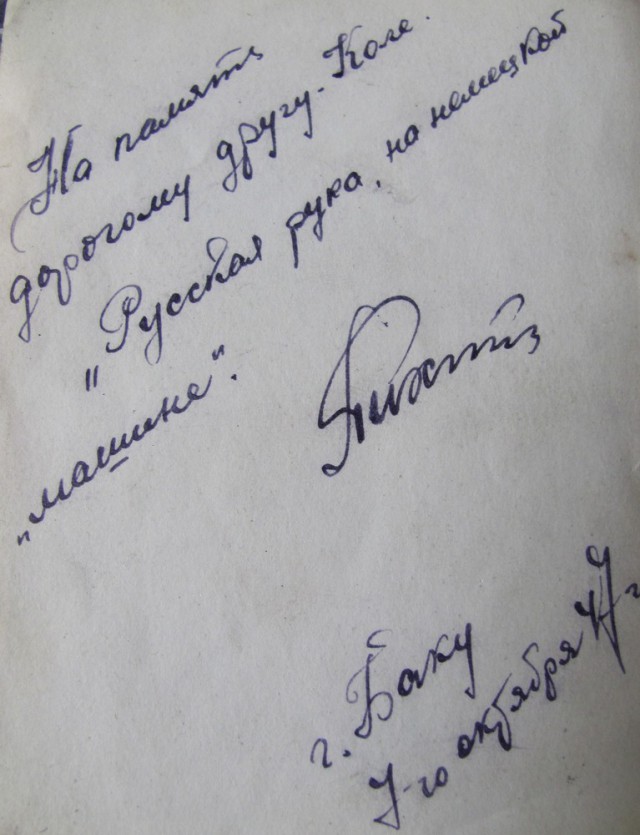 На память
дорогому другу - Коле.
"Русская рука, на немецкой
"машине".
г. Баку
7-го октября 47 г